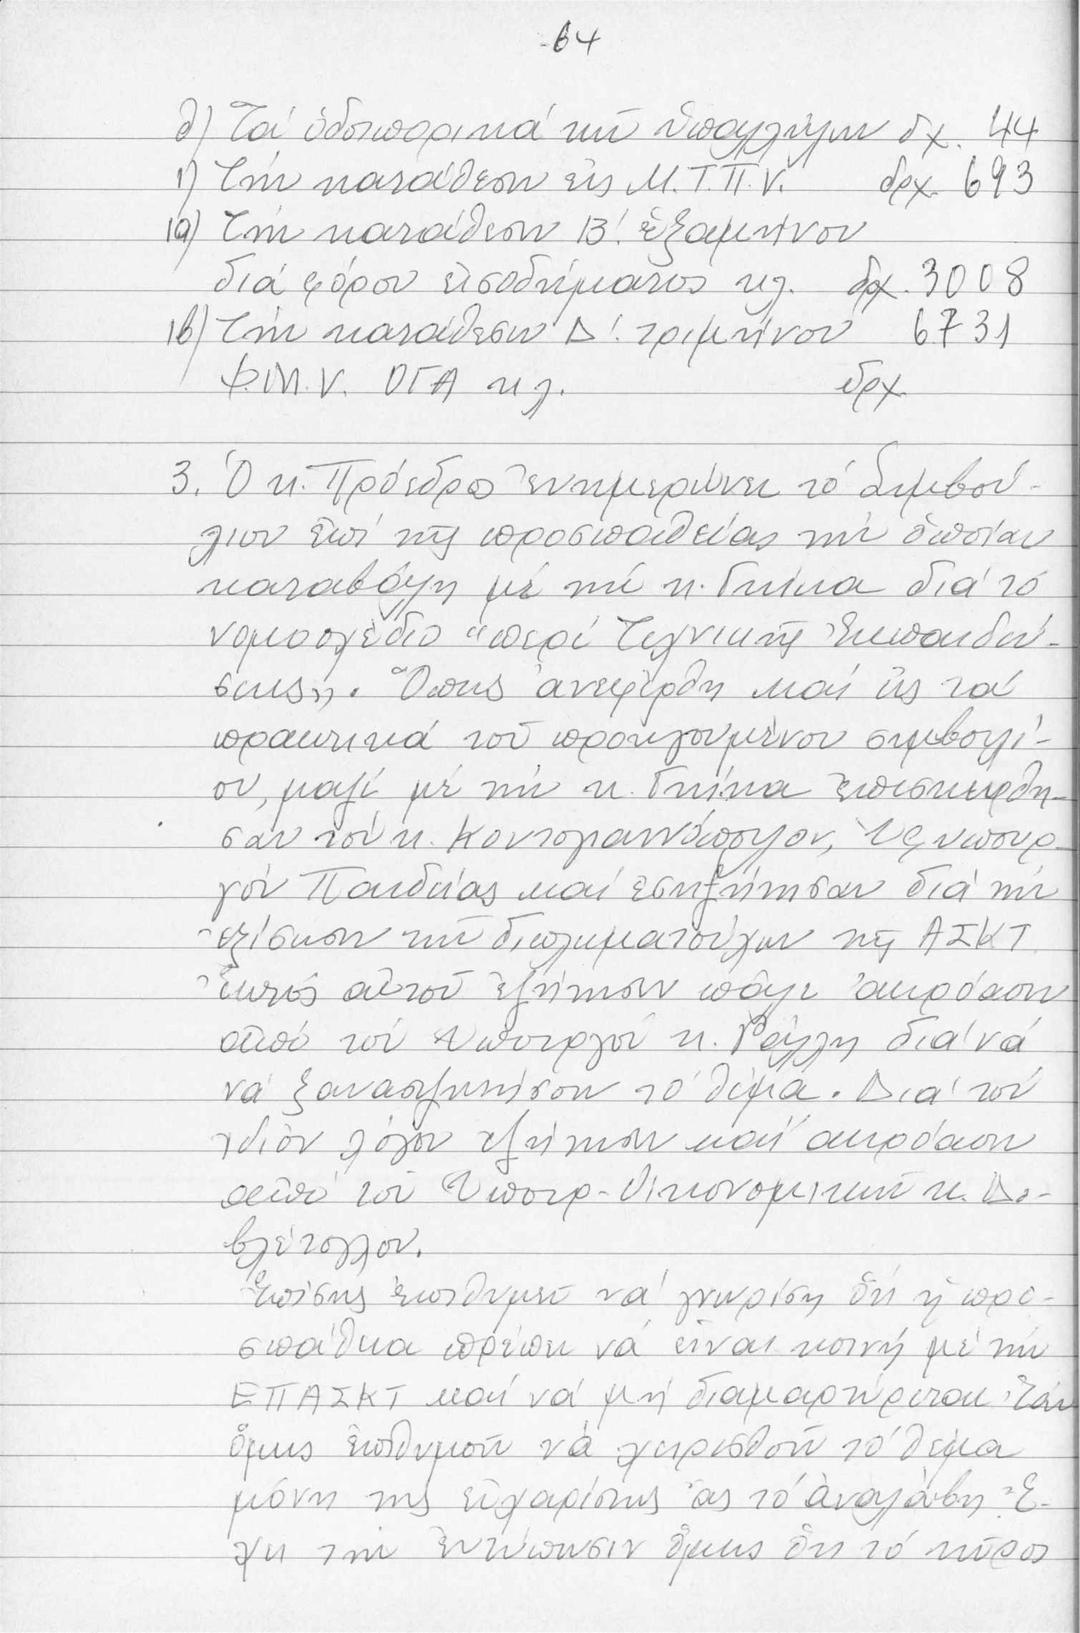 64
θ) Τά ὁδοιπορικά τῶν ὑπαλλήλων δχ. 44
ι) Τήν κατάθεσιν εἰς Μ.Τ.Π.Υ. δρχ. 693
ια) Τήν κατάθεσιν Β΄. ἑξαμήνου
διά φόρον εἰσοδήματος κλ. δρχ. 3008
ιβ) Τήν κατάθεσιν Δ΄. τριμήνου 6731
Φ.Μ.Υ. ΟΓΑ κλ. δρχ.
3. Ὁ κ. Πρόεδρος ἐνημερώνει τό Συμβού-
λιον ἐπί τῆς προσπαθείας τήν ὁποίαν
κατέβαλε μέ τήν κ. Γκίκα διά τό
νομοσχέδιο "περί Τεχνικῆς Ἐκπαιδεύ-
σεως". Ὅπως ἀνεφέρθη καί εἰς τά
πρακτικά τοῦ προηγουμένου συμβουλί-
ου, μαζί μέ τήν κ. Γκίκα ἐπισκέφθη-
σαν τόν κ. Κοντογιαννόπουλον, Ὑφυπουρ-
γόν Παιδείας καί ἐσυζήτησαν διά τήν
ἐξίσωσιν τῶν διπλωματούχων τῆς ΑΣΚΤ
Ἐκτός αὐτοῦ ἐζήτησεν πάλι ἀκρόασιν
ἀπό τόν Ὑπουργόν κ. Ράλλη διά νά
νά ξανασυζητήσουν τό θέμα. Διά τόν
ἴδιον λόγον ἐζήτησεν καί ἀκρόασιν
ἀπό τόν Ὑπουρ-Οἰκονομικῶν κ. Δε-
βλέτογλου.
Ἐπίσης ἐπιθυμεῖ νά γνωρίση ὅτι ἡ προ-
σπάθεια πρέπει νά εἶναι κοινή μέ τήν
ΕΠΑΣΚΤ καί νά μή διαμαρτύρεται. Ἐάν
ὅμως ἐπιθυμοῦν νά χειρισθοῦν τό θέμα
μόνοι της εὐχαρίστως ἄς τό ἀναλάβη. Ἔ-
χει τήν ἐντύπωσιν ὅμως ὅτι τό κῦρος